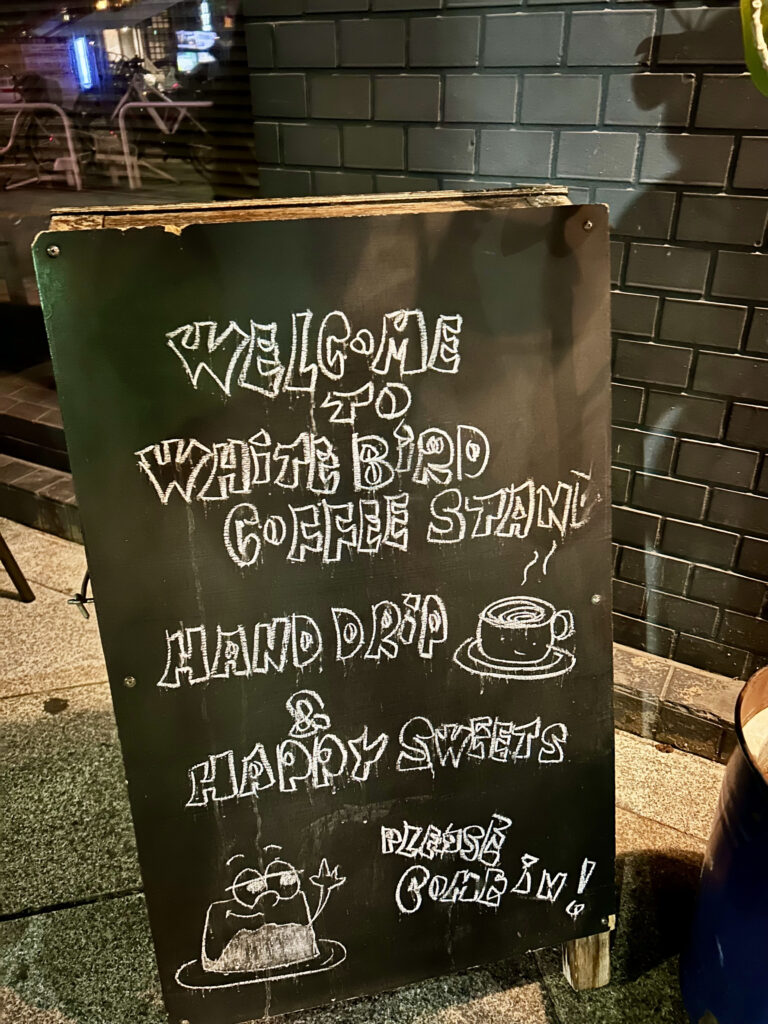 WELCOME
TO
WHiTE BiRD
COFFEE STAND
HAND DRiP
&
HAPPY SWEETS
PLEASE
COME iN!